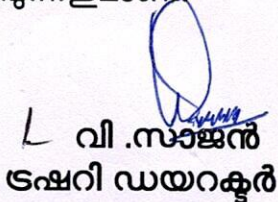 വി .സാജൻ
ട്രഷറി ഡയറക്ടർ